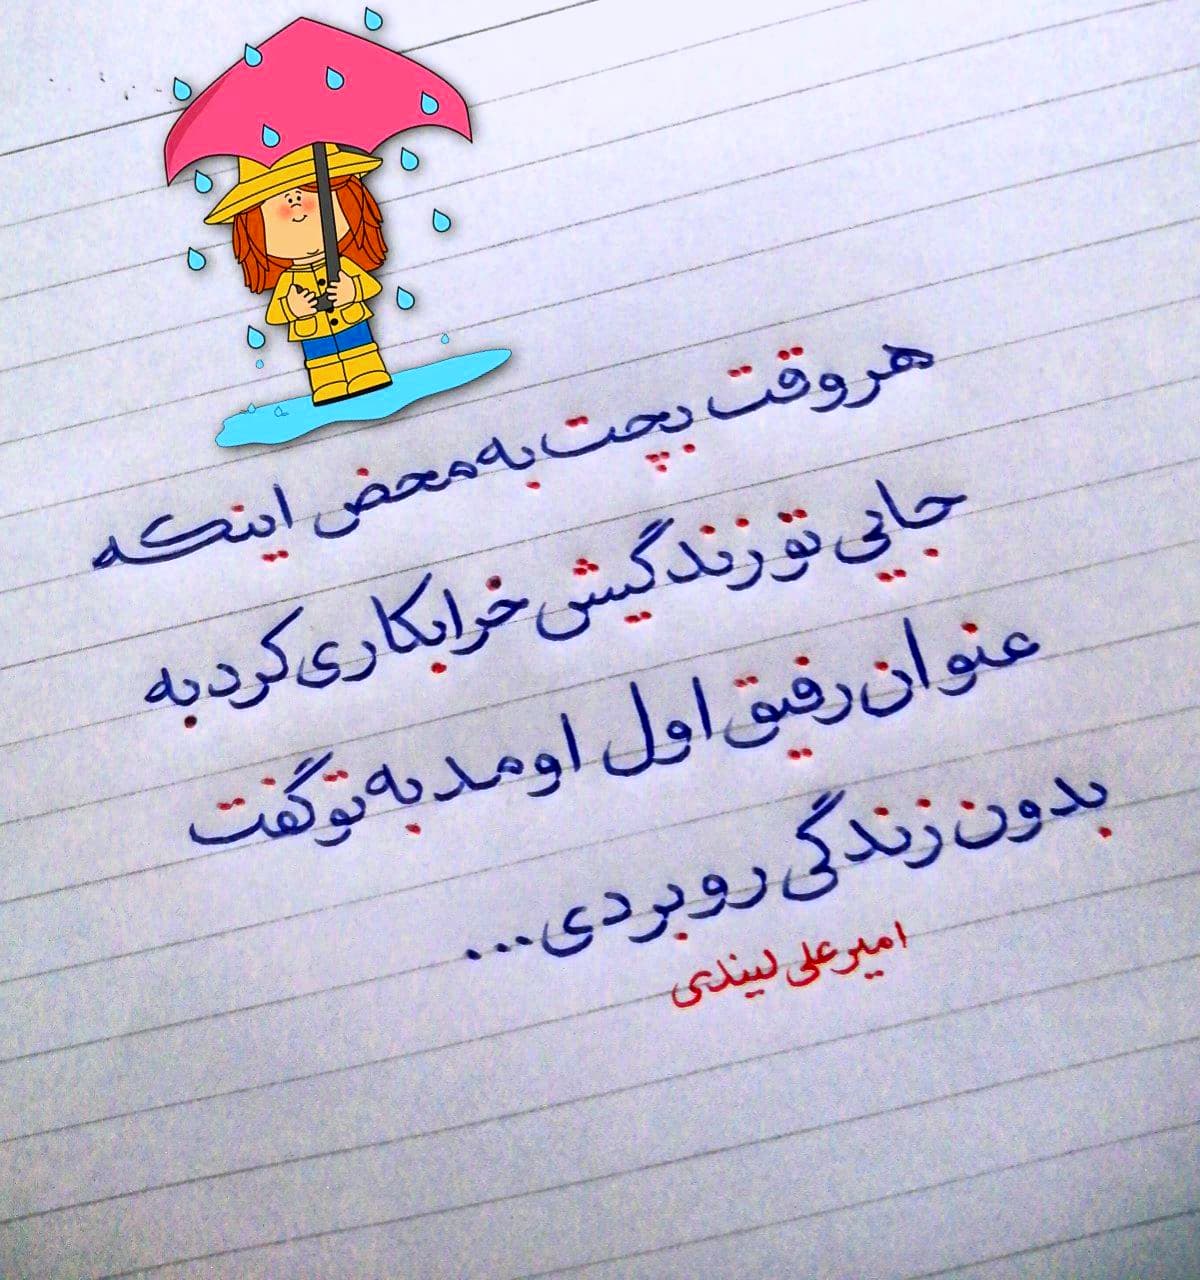 هر وقت بچت به محض اینکه
جایی تو زندگیش خرابکاری کرد به
عنوان رفیق اول اومد به تو گفت
بدون زندگی رو بردی...
امیرعلی لیندی